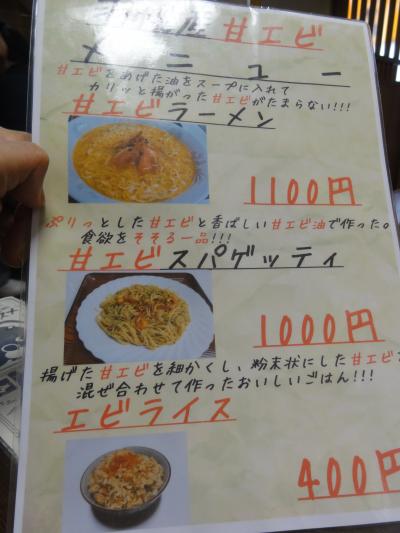 甘エビ
メニュー
甘エビをあげた油をスープに入れて
カリッと揚がった甘エビがたまらない!!!
甘エビラーメン
1100円
ぷりっとした甘エビと香ばしい甘エビ油で作った。
食欲をそそる一品!!!
甘エビスパゲッティ
1000円
揚げた甘エビを細かくし、粉末状にした甘エビ
混ぜ合わせて作ったおいしいごはん!!!
エビライス
400円